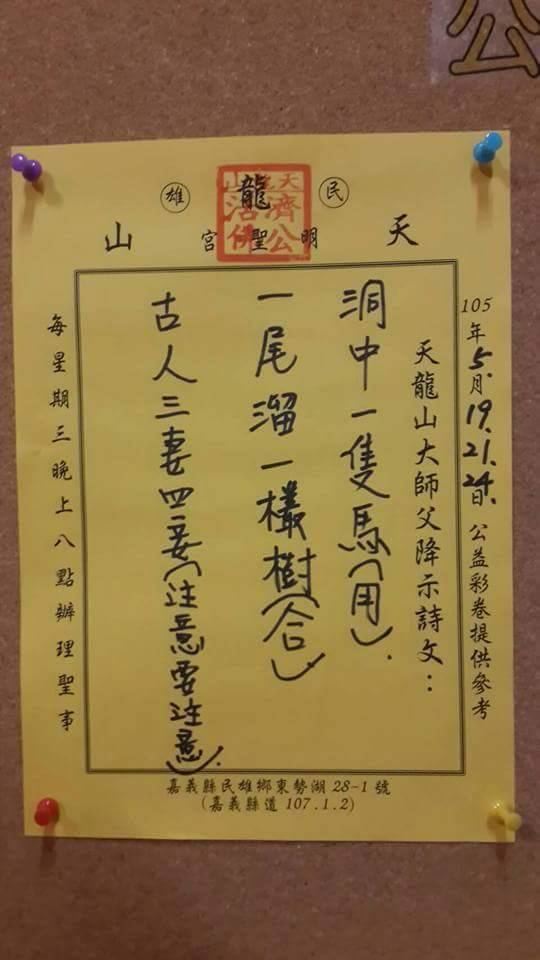 公
民雄
天龍山明聖宮
天龍山
濟公
活佛
105年5.月19.21.24.日公益彩卷提供參考
天龍山大師父降示詩文：
洞中一隻馬(用).
一尾溜一欉樹(合)
古人三妻四妾(注意要注意).
每星期三晚上八點辦理聖事
嘉義縣民雄鄉東勢湖28-1號
(嘉義縣道107.1.2)